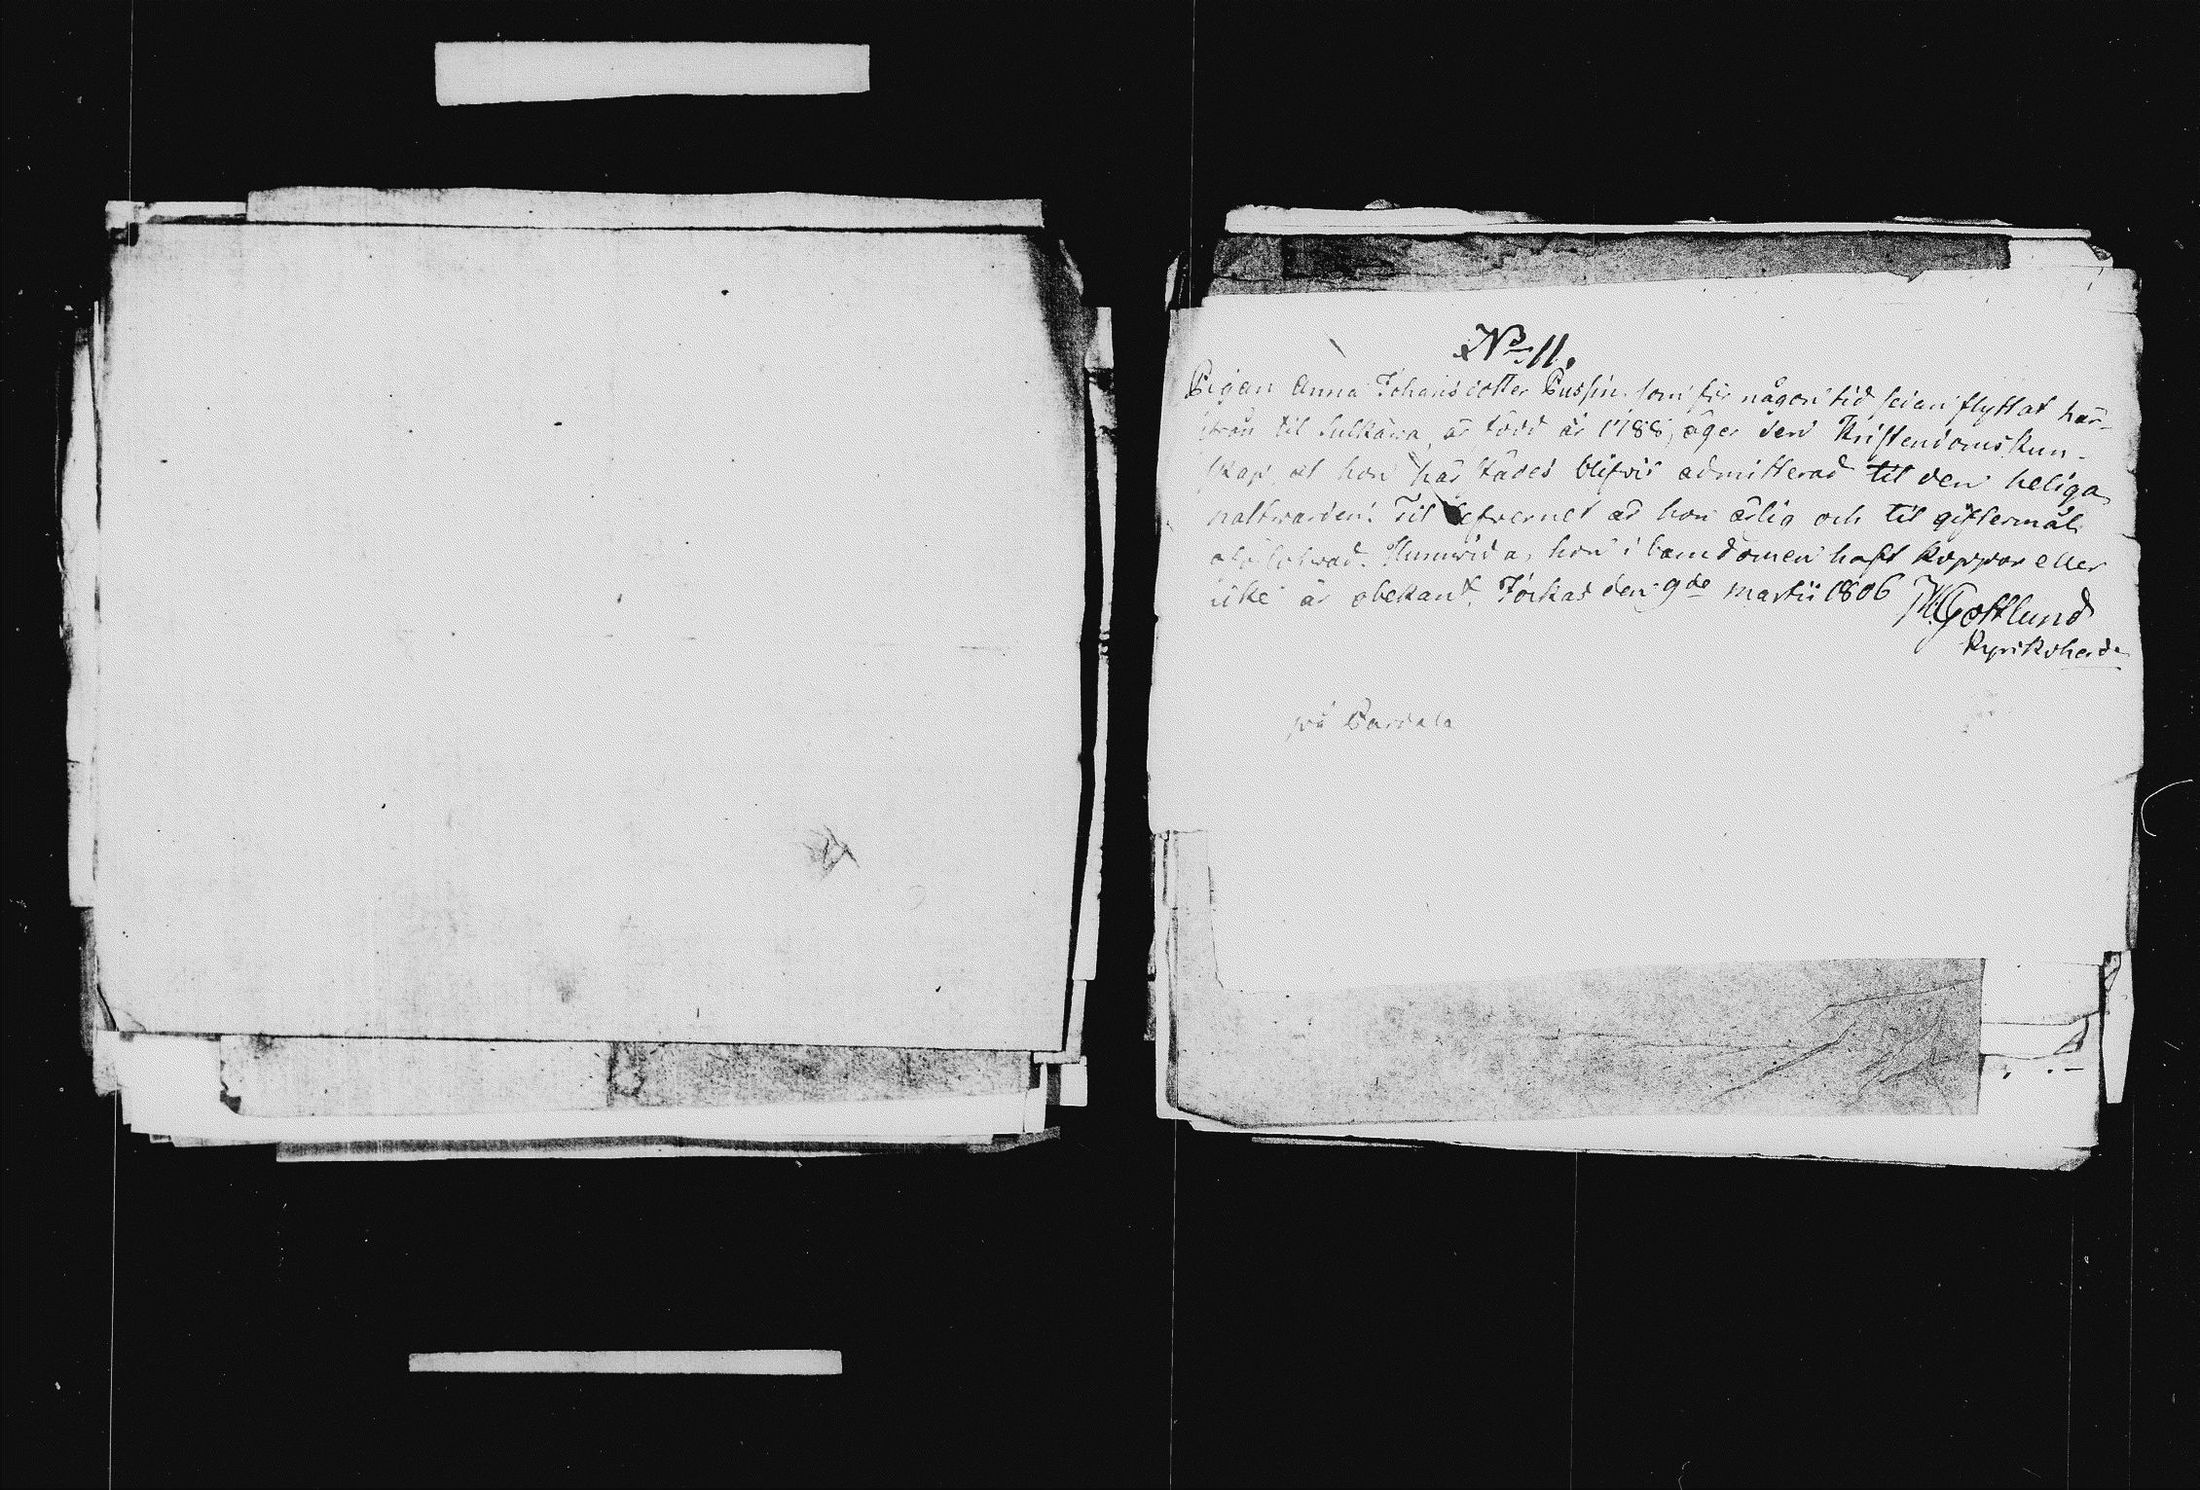 No 11.
Pigan Anna Johansdotter Pussin. som för någon tid sedan flyttat här-
ifrån til Sulkava, är född år 1788, äger den Kristendomskun-
skap, at hon härstädes blifvit admitterad til den heliga
nattvarden. Til lefvernet är hon ärlig och til giftermål
obehindrad. Hurruvida hon i barndomen haft koppor eller
icke är obekant. Jockas den 9de martii 1806 Gottlund
Kyrkoherde
på Pardala